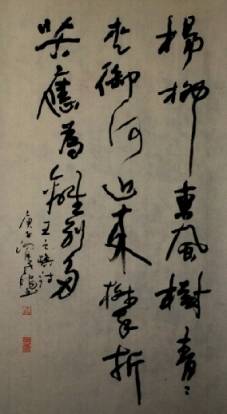 楊柳東風樹青青
夾御河近來攀折
苦應為離別多
王之渙詩
庚午